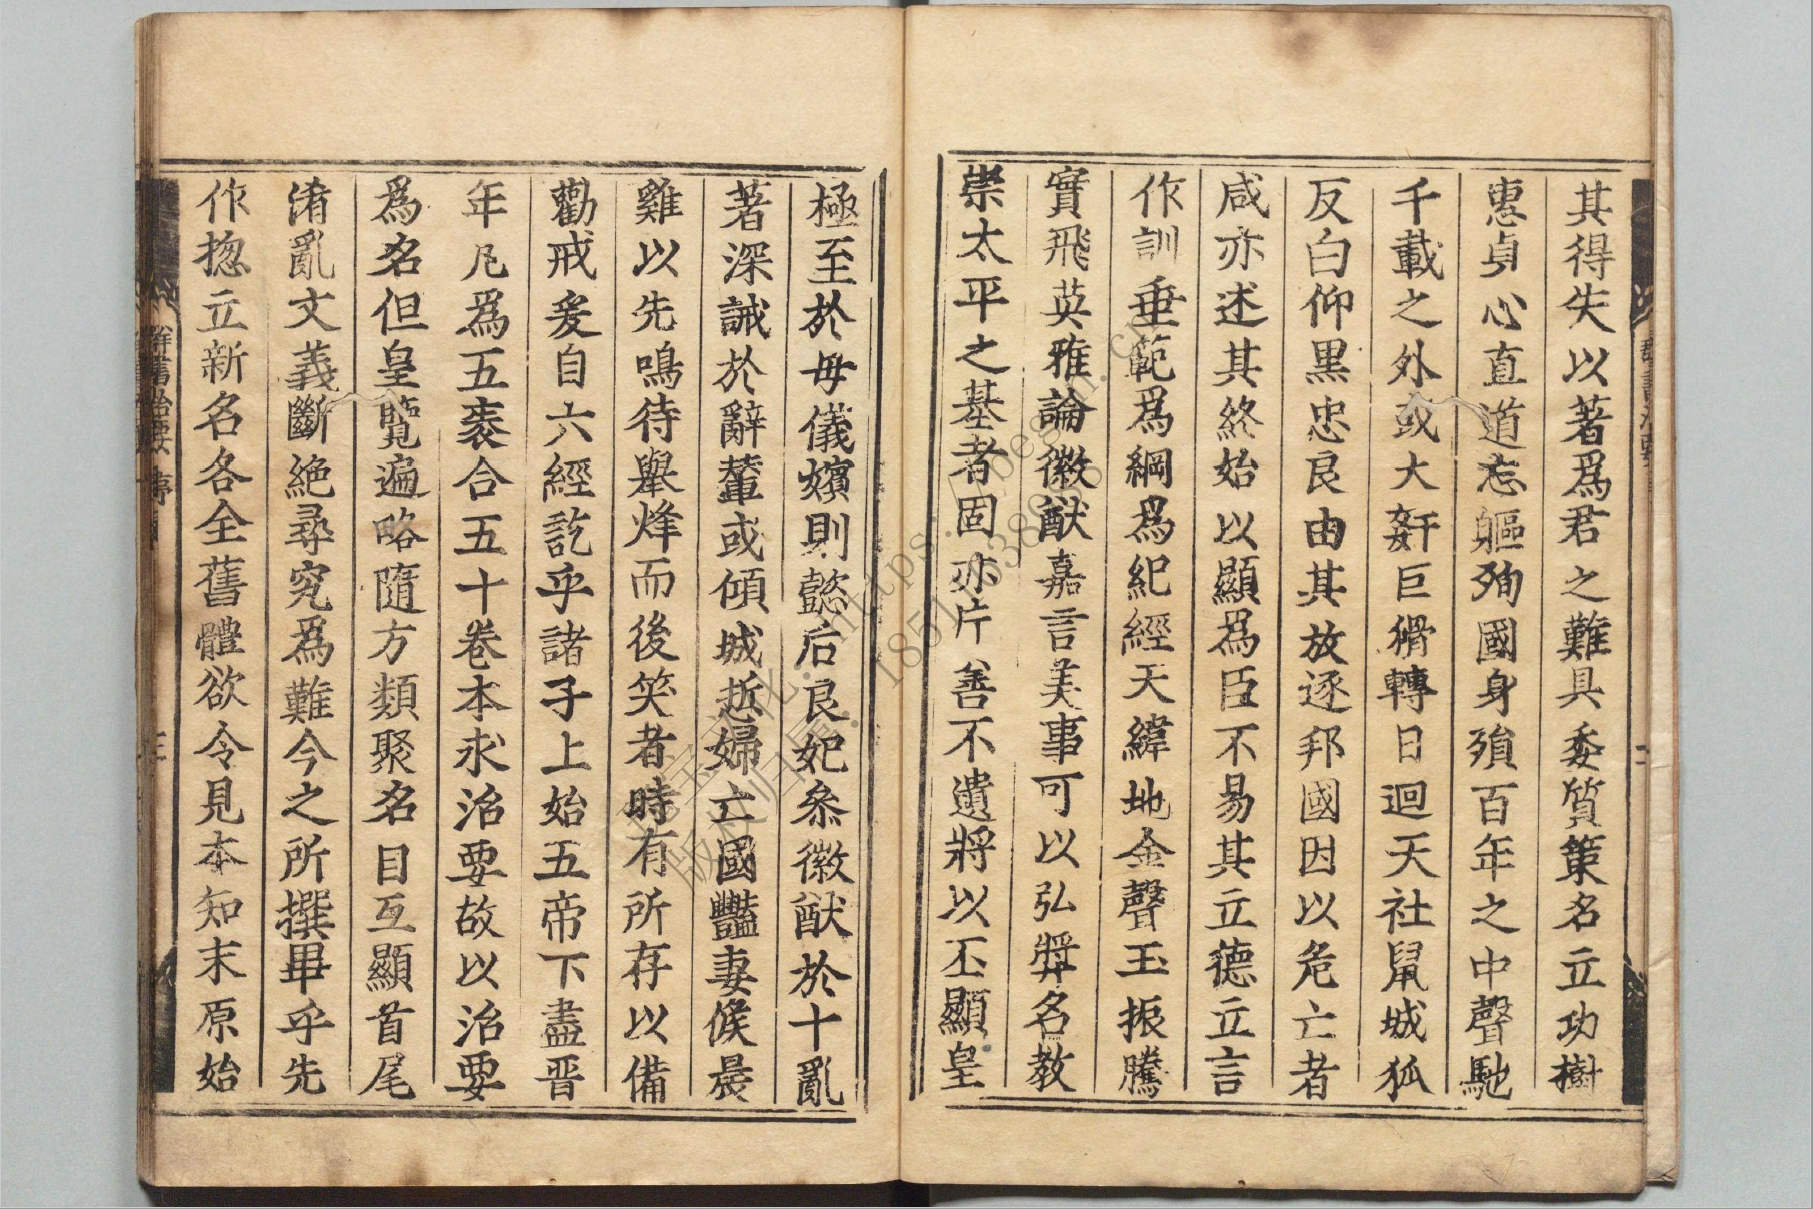 其得失以著爲君之難具委質策名立功樹
惠貞心直道忘軀殉國身殞百年之中聲馳
千載之外或大奸巨猾轉日迴天社鼠城狐
反白仰黑忠良由其放逐邦國因以危亡者
咸亦述其終始以顯爲臣不易其立德立言
作訓垂範爲綱爲紀經天緯地金聲玉振騰
實飛英雅論徽猷嘉言美事可以弘奬名教
崇太平之基者固亦片善不遺將以丕顯皇
極至於母儀嬪則懿后良妃叅徽猷於十亂
著深誡於辭輦或傾城悊婦亡國豔妻候晨
雞以先鳴待舉烽而後笑者時有所存以備
勸戒爰自六經訖乎諸子上始五帝下盡晋
年凡爲五袠合五十卷本求治要故以治要
爲名但皇覽遍略隨方類聚名目互顯首尾
淆亂文義斷絕尋究爲難今之所撰異乎先
作揔立新名各全舊體欲令見本知末原始
群書治要 序
三